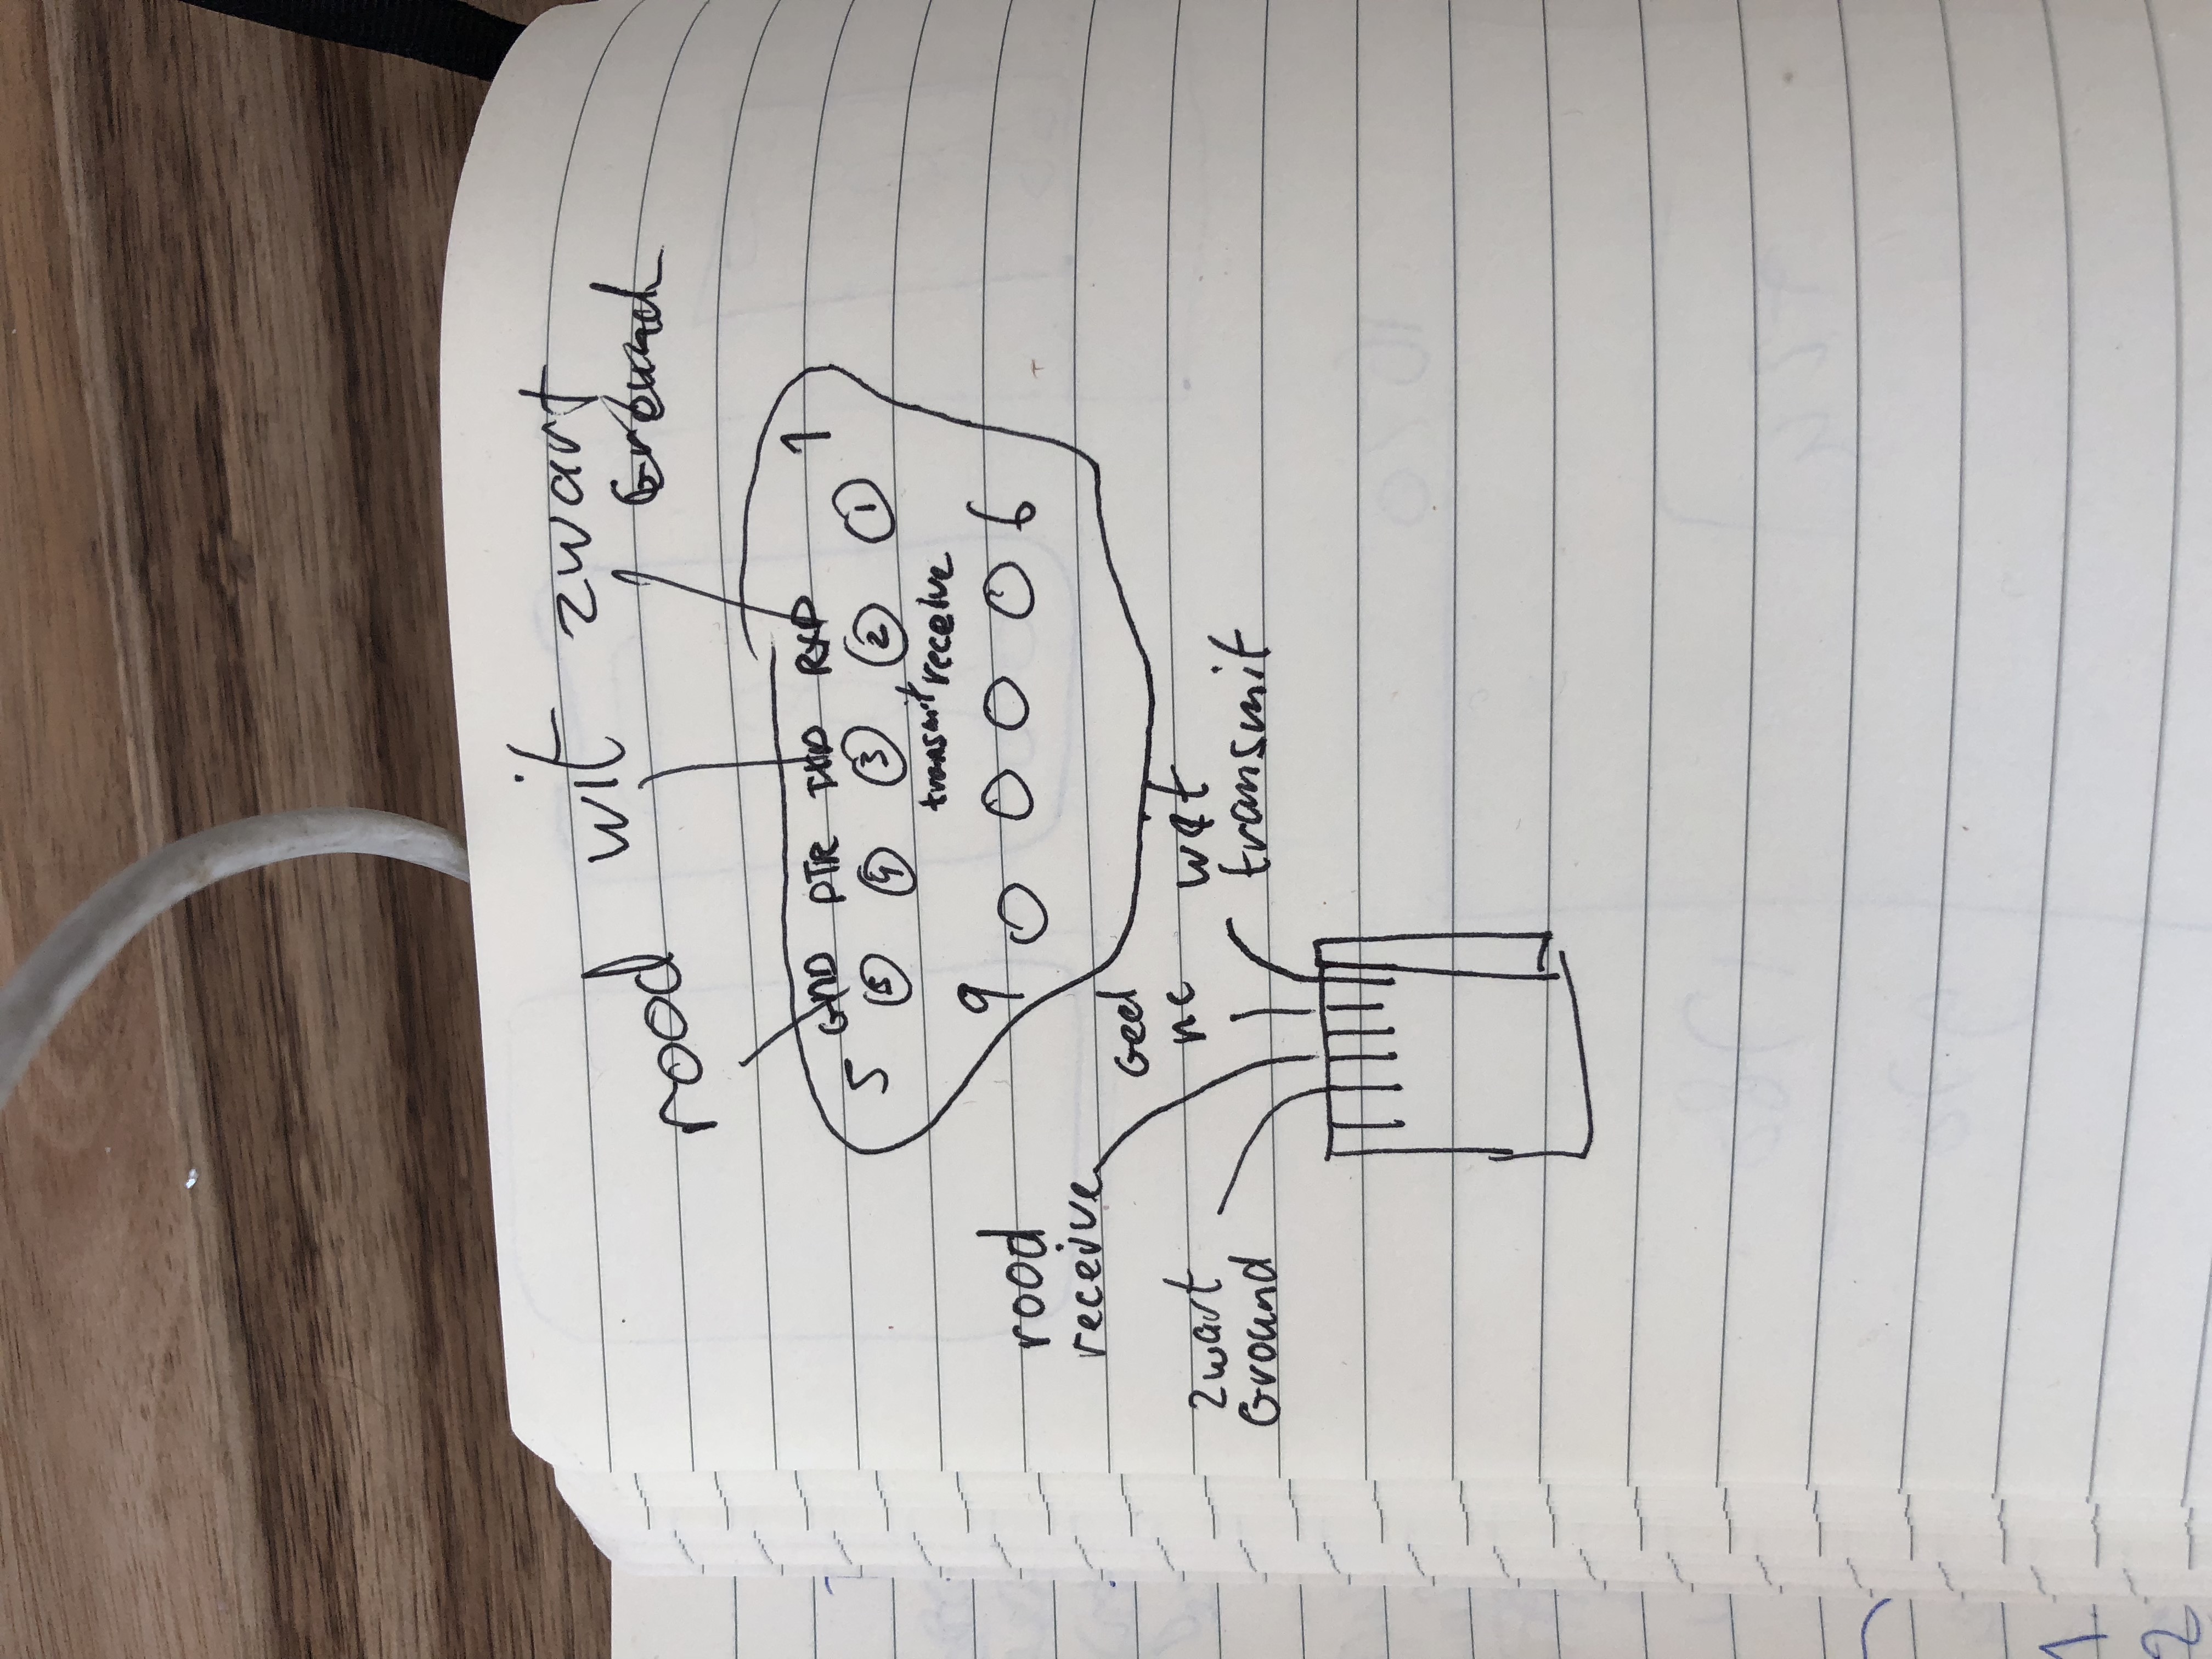 rood wit zwart
Ground
GND DTR TXD RXD 1
5 5 4 3 2 1
transmit receive
9 6
rood
receive
Geel
nc
zwart
Ground
wit
transmit
1
2